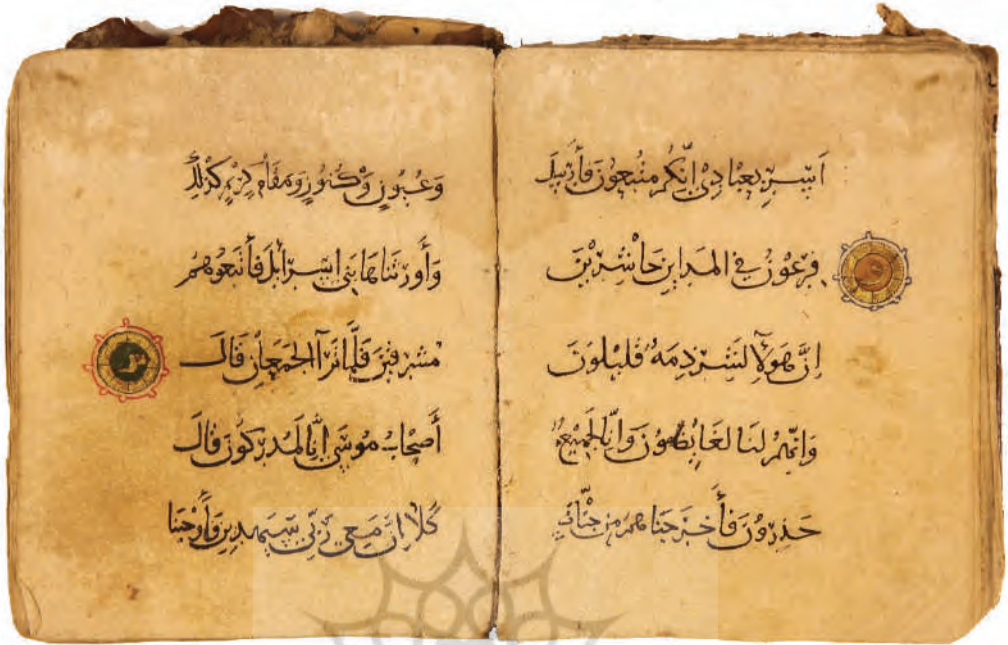 اَسْرِ بِعِبَادِيْ اِنَّكُمْ مُتَّبَعُوْنَ فَأَرْسَلَ
فِرْعَوْنُ فِي المَدَايِنِ حَاشِرِيْنَ
اِنَّ هَوُلَآءِ لَشِرْذِمَةٌ قَلِيْلُونَ
وَاِنَّهُمْ لَنَا لَغَايِظُوْنَ وَاِنَّا لَجَمِيْعٌ
حَذِرُوْنَ فَأَخْرَجْنَاهُمْ مِنْ جَنَّاتٍ
وَعُيُوْنٍ وَكُنُوْزٍ وَمَقَامٍ كَرِيْمٍ كَذَلِكَ
وَأَوْرَثْنَاهَا بَنِي اِسْرَآئِلَ فَأَتْبَعُوْهُمْ
مُشْرِقِيْنَ فَلَمَّا تَرَآ الجَمْعَانِ قَالَ
أَصْحَابُ مُوْسَى اِنَّا لَمُدْرَكُوْنَ قَالَ
كَلَّا اِنَّ مَعِيَ رَبِّي سَيَهْدِيْنِ فَأَوْحَيْنَا